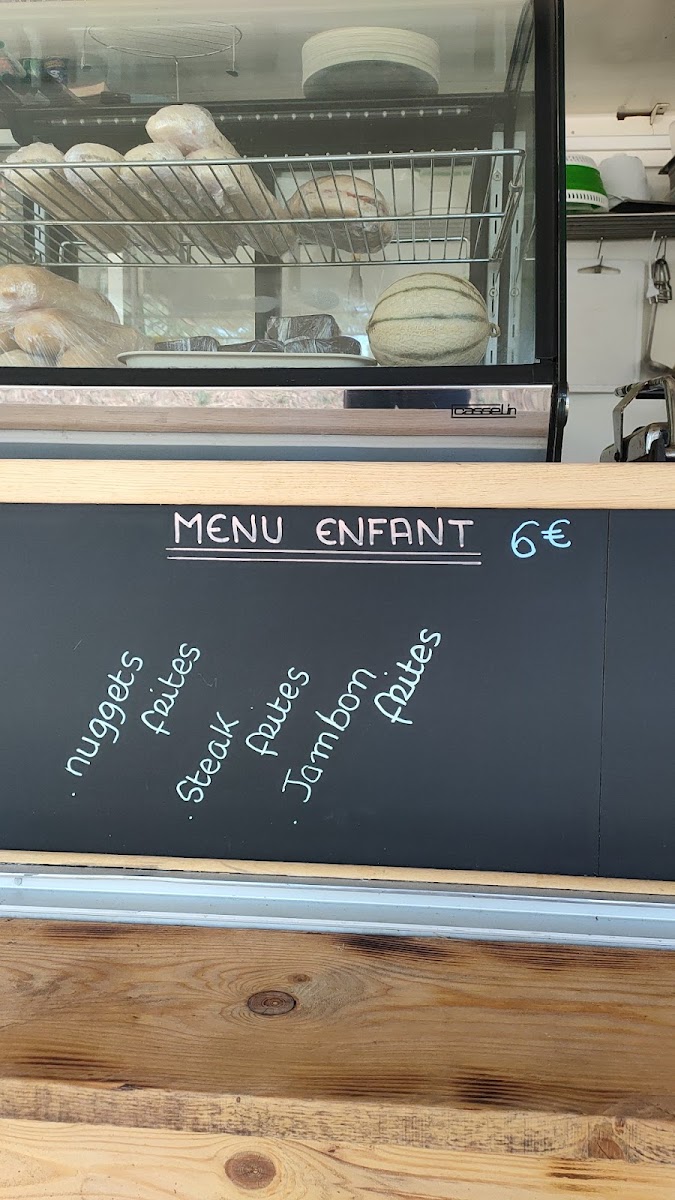 casselin
MENU ENFANT 6€
. nuggets
frites
. Steak
frites
. Jambon
frites